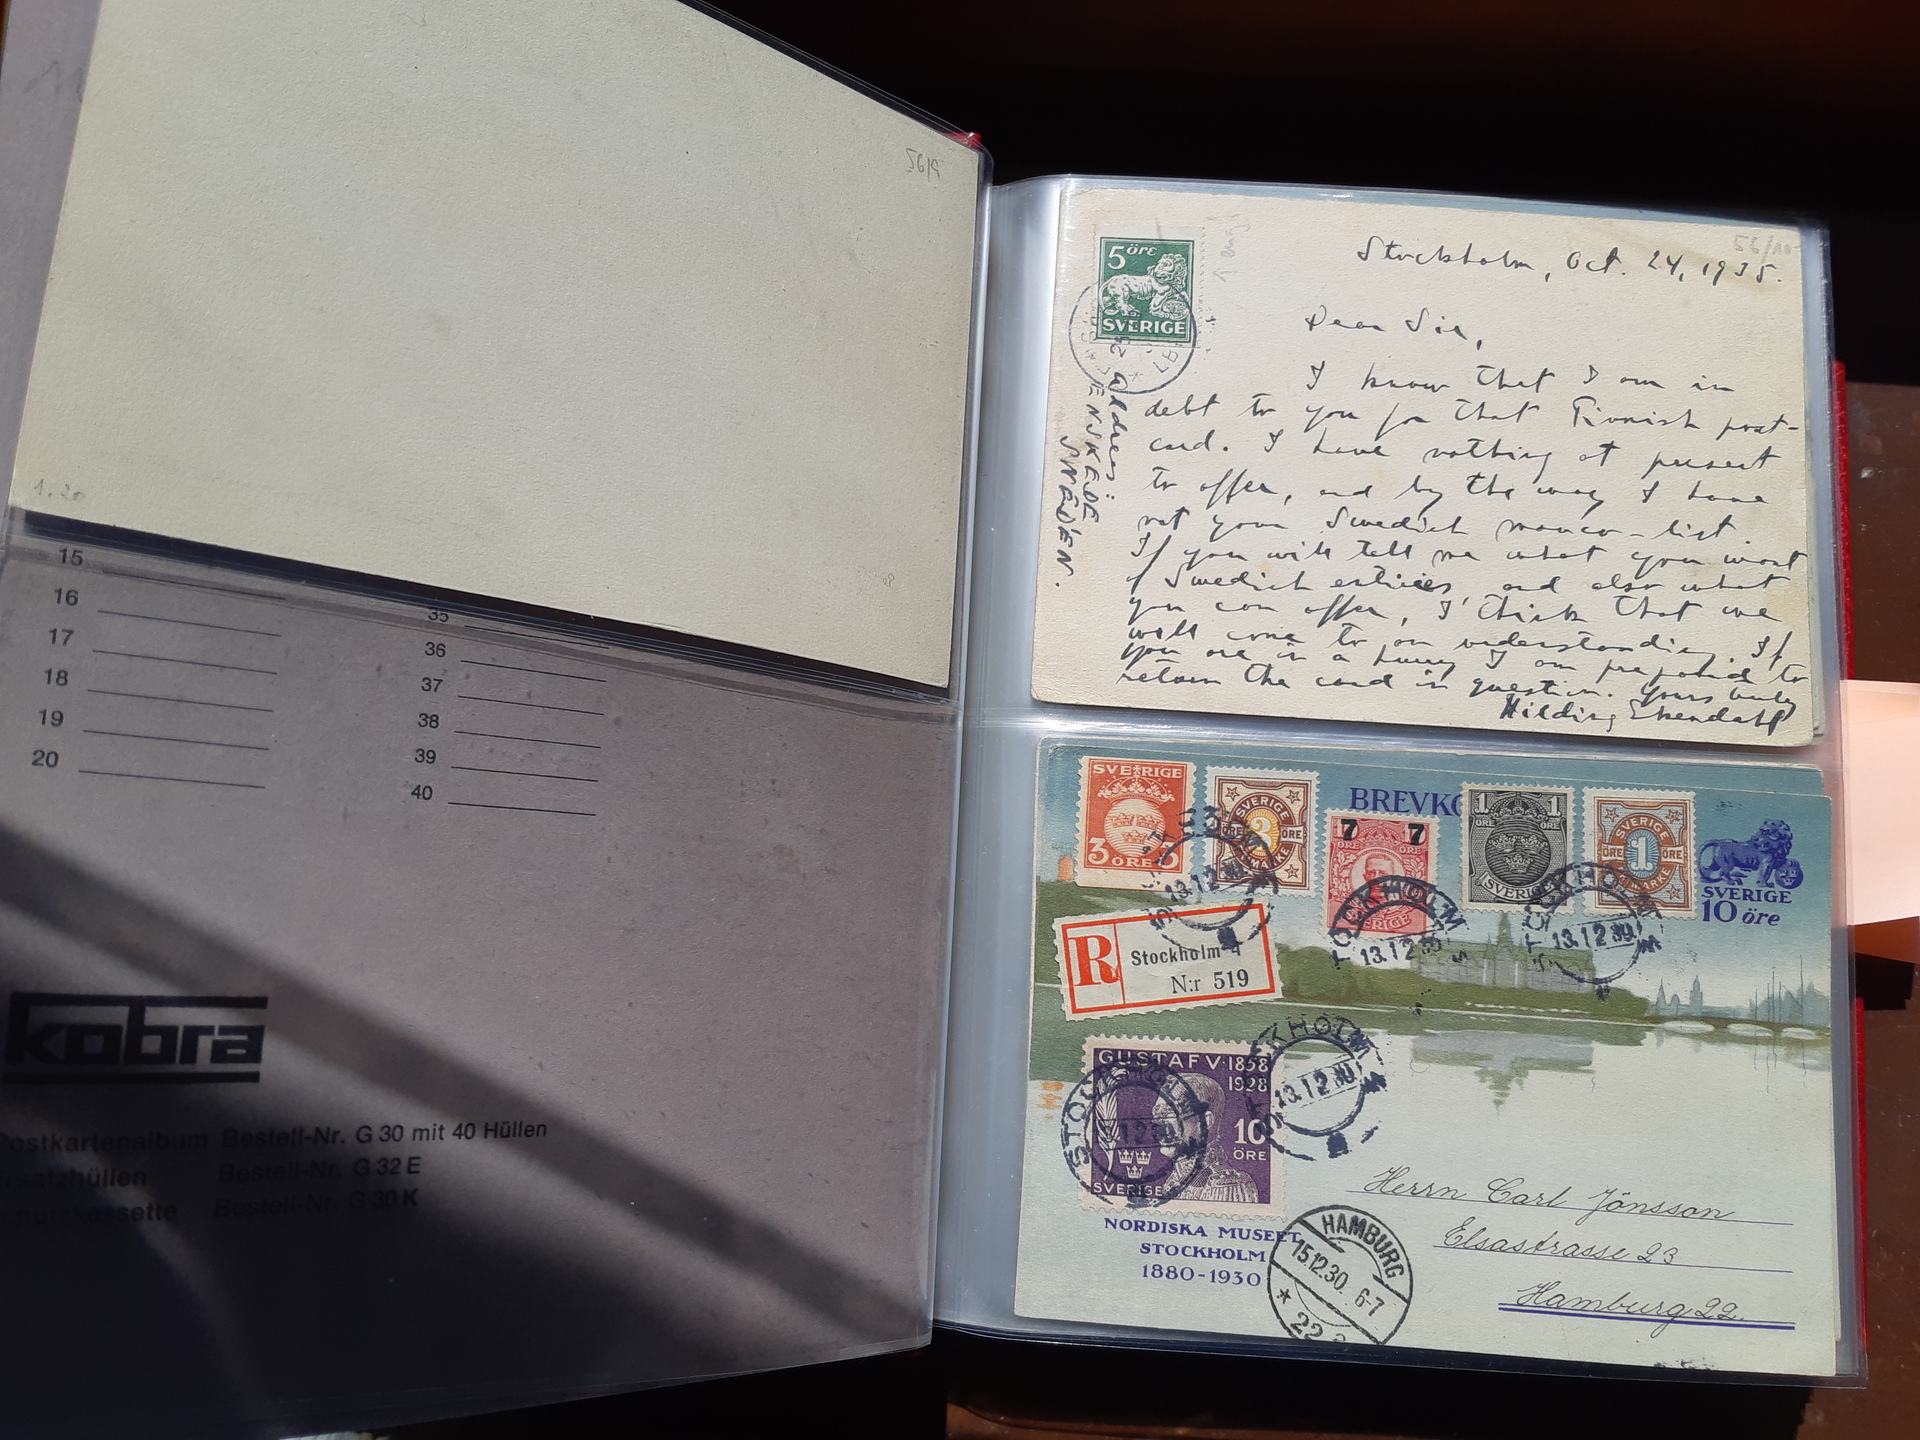 56/9
1.20
15
16
17
18
19
20
35
36
37
38
39
40
kobra
Postkartenalbum Bestell-Nr. G 30 mit 40 Hüllen
Ersatzhüllen Bestell-Nr. G 32 E
Schutzkassette Bestell-Nr. G 30 K
56/10
5 öre
SVERIGE
Address:
ENSKEDE
SWEDEN.
Stockholm, Oct. 24, 1935.
Dear Sir,
I know that I am in
debt to you for that Finnish post-
card. I have nothing at present
to offer, and by the way I have
not your Swedish manco-list.
If you will tell me what you want
of Swedish entires, and also what
you can offer, I think that we
will come to an understanding. If
you are in a hurry I am prepared to
return the card in question. Yours truly
Hilding
SVERIGE
3 ÖRE 3
SVERIGE
ÖRE 3 ÖRE
FRIMARKE
7 7
ÖRE ÖRE
SVERIGE
BREVKO
1 1
ÖRE ÖRE
SVERIGE
SVERIGE
ÖRE 1 ÖRE
FRIMARKE
SVERIGE
10 öre
STOCKHOLM
13.12.30
STOCKHOLM
13.12.30
STOCKHOLM
13.12.30
R
Stockholm 4
N:r 519
GUSTAF V·1858
1928
10
ÖRE
SVERIGE
STOCKHOLM
STOCKHOLM
13.12.30
NORDISKA MUSEET
STOCKHOLM
1880-1930
HAMBURG
15.12.30. 6-7
* 22
Herrn Carl Jönsson
Elsastrasse 23
Hamburg 22.